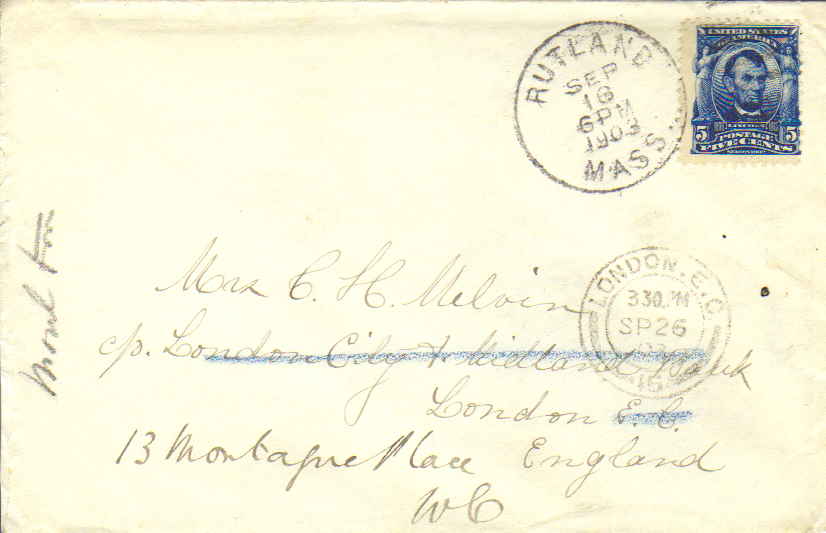 RUTLAND
SEP
18
6PM
1903
MASS.
UNITED STATES
OF AMERICA
5 POSTAGE 5
FIVE CENTS
LONDON. E.C
330.PM
SP26
03
Mrs C. H. Melvin
c/o. London City & Midland Bank
London E. C.
13 Montague Place England
WC